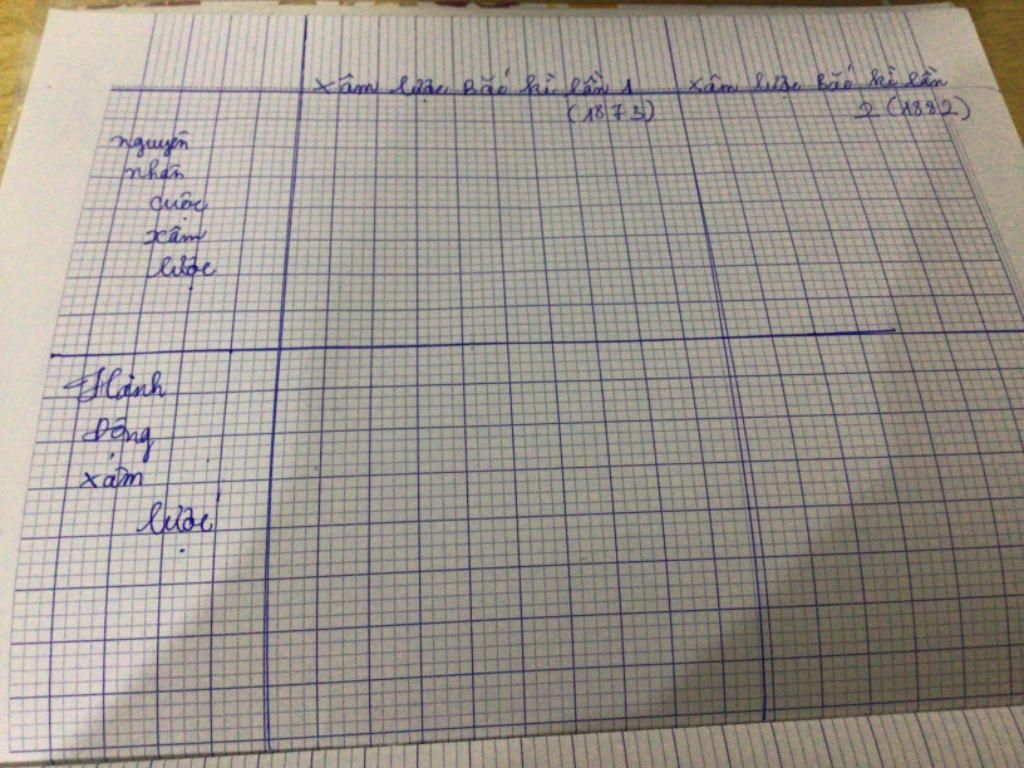 xâm lược Bắc kì lần 1
(1873)
xâm lược Bắc kì lần
2 (1882)
nguyên
nhân
cuộc
xâm
lược
Hành
Động
xâm
lược